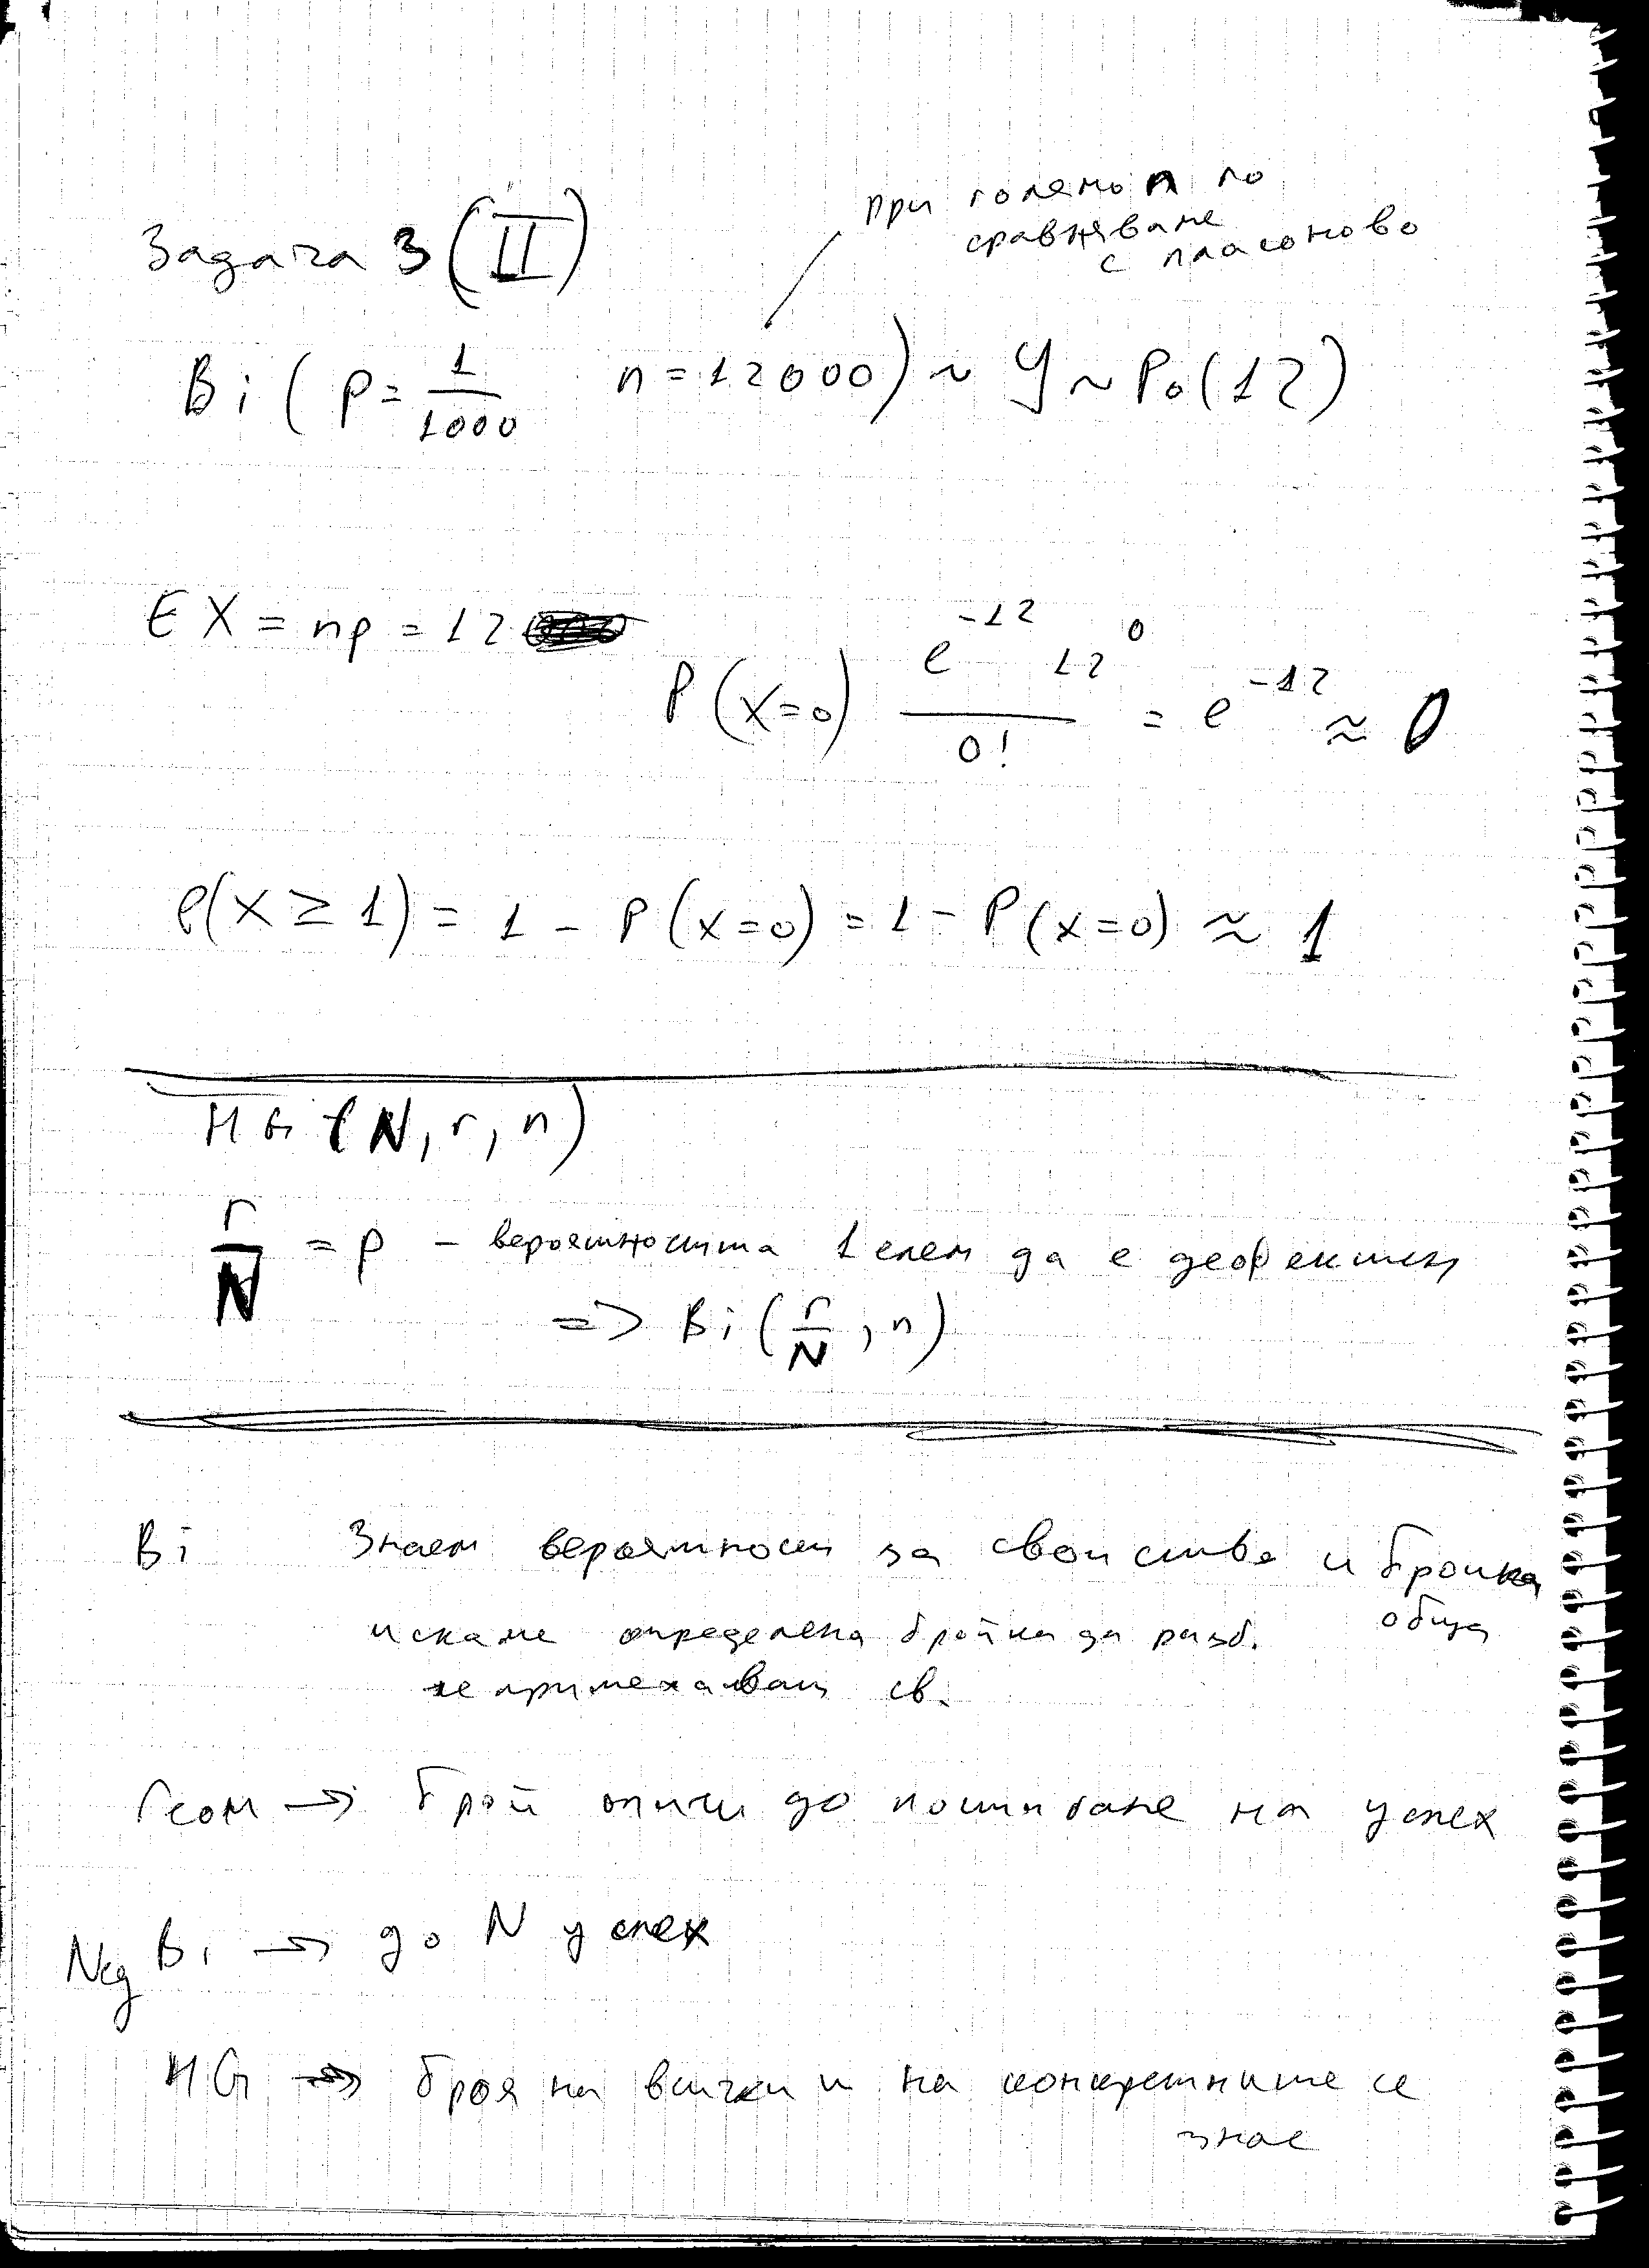 Задача 3 (II)
при голямо n го
сравняваме
с поасоново
Bi ( p = 1/1000 n = 12000 ) ~ Y ~ Po(12)
EX = np = 12
P(X=0) e^-12 12^0 / 0! = e^-12 ≈ 0
P(X ≥ 1) = 1 - P(x=0) = 1 - P(x=0) ≈ 1
HG (N, r, n)
r/N = p - вероятността 1 елем да е дефектен
=> Bi (r/N, n)
Bi Знаем вероятност за свойство и бройка
обща
искаме определена бройка да
св.
Геом → брой опити до на успех
Neg Bi → до N успех
HG → броя на всички и на конкретните се
знае